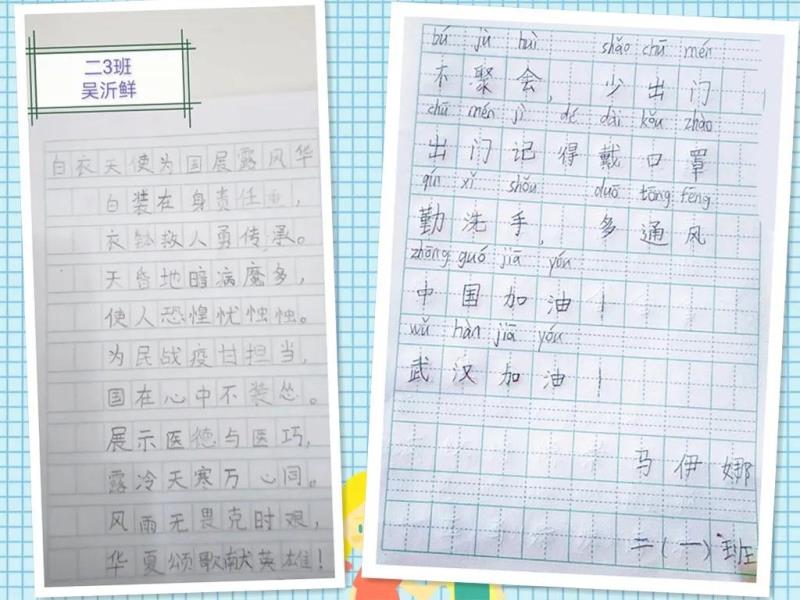 二3班
吴沂鲜
白衣天使为国展露风华
白装在身责任重，
衣钵救人勇传承。
天昏地暗病魔多，
使人恐惶忧忡忡。
为民战疫甘担当，
国在心中不装怂。
展示医德与医巧，
露冷天寒万心同。
风雨无畏克时艰，
华夏颂歌献英雄！
bú jù huì shǎo chū mén
不聚会，少出门
chū mén jì dé dài kǒu zhào
出门记得戴口罩
qín xǐ shǒu duō tōng fēng
勤洗手，多通风
zhōng guó jiā yóu
中国加油！
wǔ hàn jiā yóu
武汉加油！
马伊娜
二（一）班